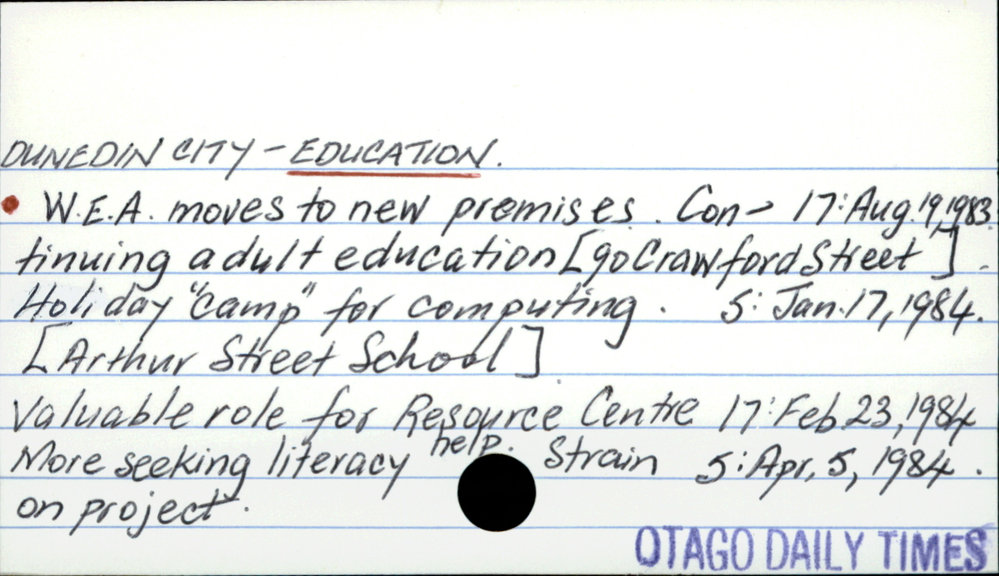 DUNEDIN CITY - EDUCATION.
• W.E.A. moves to new premises. Con- 17: Aug. 19, 1983.
tinuing adult education [90 Crawford Street].
Holiday "camp" for computing. 5: Jan. 17, 1984.
[Arthur Street School]
Valuable role for Resource Centre 17: Feb 23, 1984
More seeking literacy help. Strain 5: Apr, 5, 1984.
on project.
OTAGO DAILY TIMES